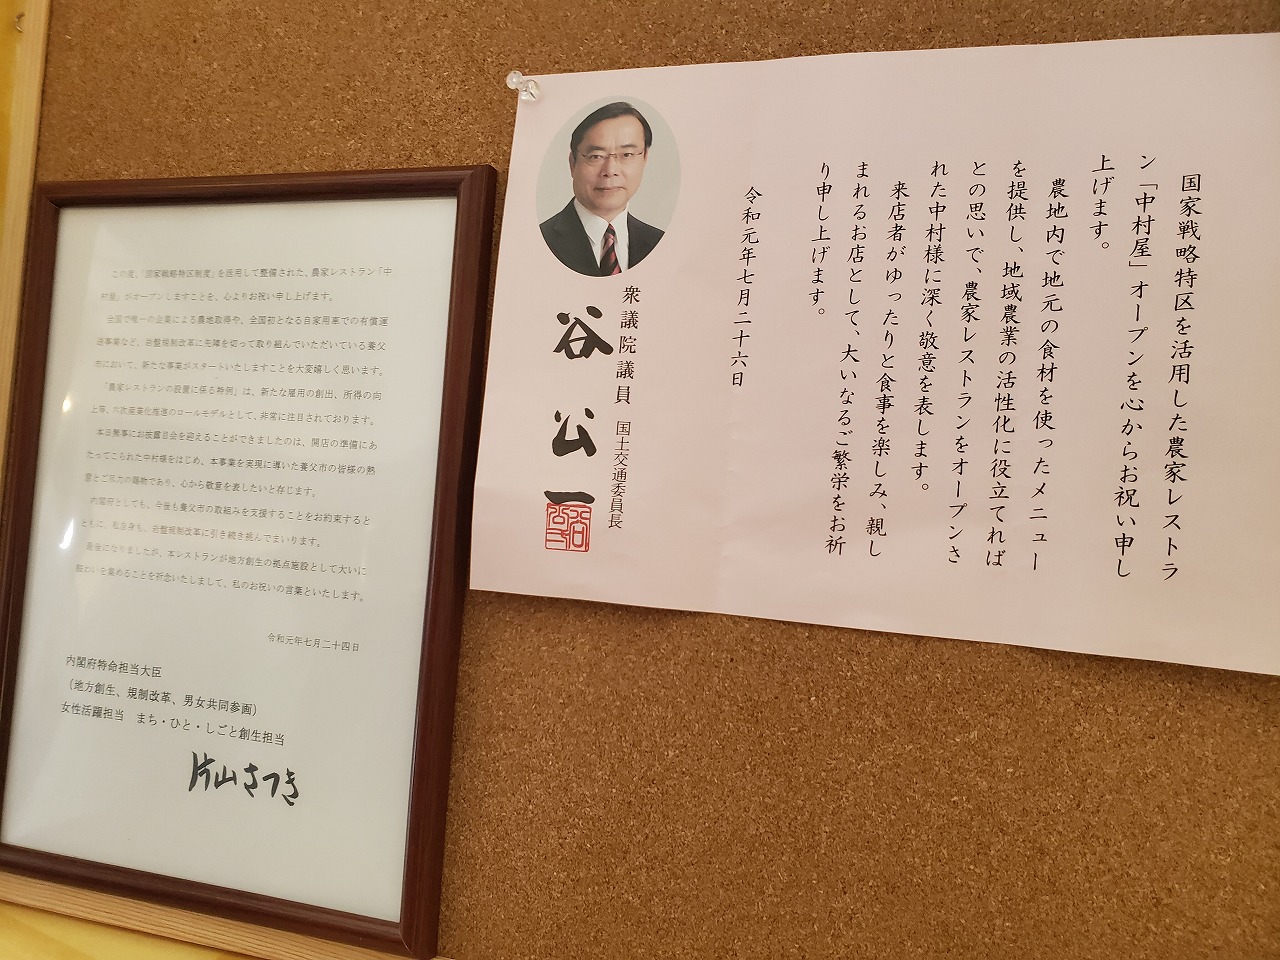 この度、「国家戦略特区制度」を活用して整備された、農家レストラン「中
村屋」がオープンしますことを、心よりお祝い申し上げます。
全国で唯一の企業による農地取得や、全国初となる自家用車での有償運
送事業など、岩盤規制改革に先陣を切って取り組んでいただいている養父
市において、新たな事業がスタートいたしますことを大変嬉しく思います。
「農家レストランの設置に係る特例」は、新たな雇用の創出、所得の向
上等、六次産業化推進のロールモデルとして、非常に注目されております。
本日無事にお披露目会を迎えることができましたのは、開店の準備にあ
たってこられた中村様をはじめ、本事業を実現に導いた養父市の皆様の熱
意とご尽力の賜物であり、心から敬意を表したいと存じます。
内閣府としても、今後も養父市の取組みを支援することをお約束すると
ともに、私自身も、岩盤規制改革に引き続き挑んでまいります。
最後になりましたが、本レストランが地方創生の拠点施設として大いに
賑わいを集めることを祈念いたしまして、私のお祝いの言葉といたします。
令和元年七月二十四日
内閣府特命担当大臣
（地方創生、規制改革、男女共同参画）
女性活躍担当　まち・ひと・しごと創生担当
片山さつき
国家戦略特区を活用した農家レストラ
ン「中村屋」オープンを心からお祝い申し
上げます。
農地内で地元の食材を使ったメニュー
を提供し、地域農業の活性化に役立てれば
との思いで、農家レストランをオープンさ
れた中村様に深く敬意を表します。
来店者がゆったりと食事を楽しみ、親し
まれるお店として、大いなるご繁栄をお祈
り申し上げます。
令和元年七月二十六日
衆議院議員　国土交通委員長
谷公一